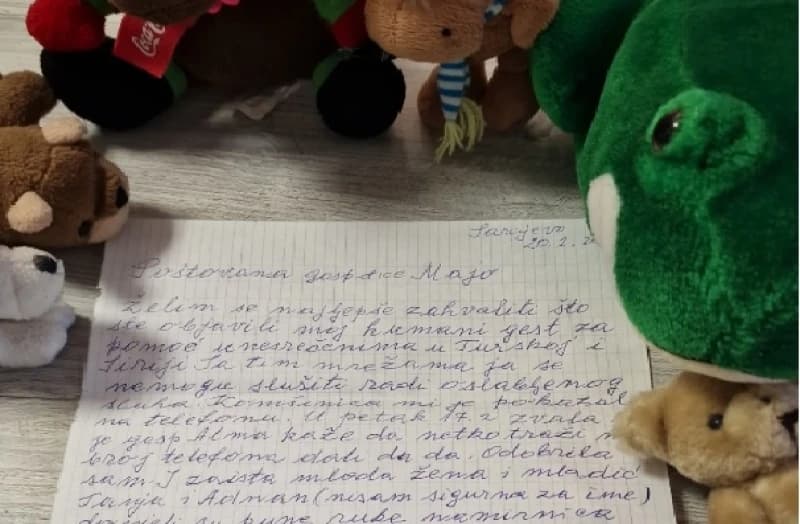 Coca-Cola
Sarajevo
20.2.
Poštovana gospođice Majo
Želim se najljepše zahvaliti što
ste objavili moj humani gest za
pomoć unesrećenima u Turskoj i
Siriji Ja tim mrežama ja se
nemogu služiti radi oslabljenog
sluha. Komšinica mi je pokazala
na telefonu. U petak 17 2 zvala
je gosp Alma kaže da netko traži
broj telefona dali da da. Odobrila
sam. I zaista mlada žena i mladić
Tanja i Adnan (nisam sigurna za ime)
donijeli su pune ruke namirnica